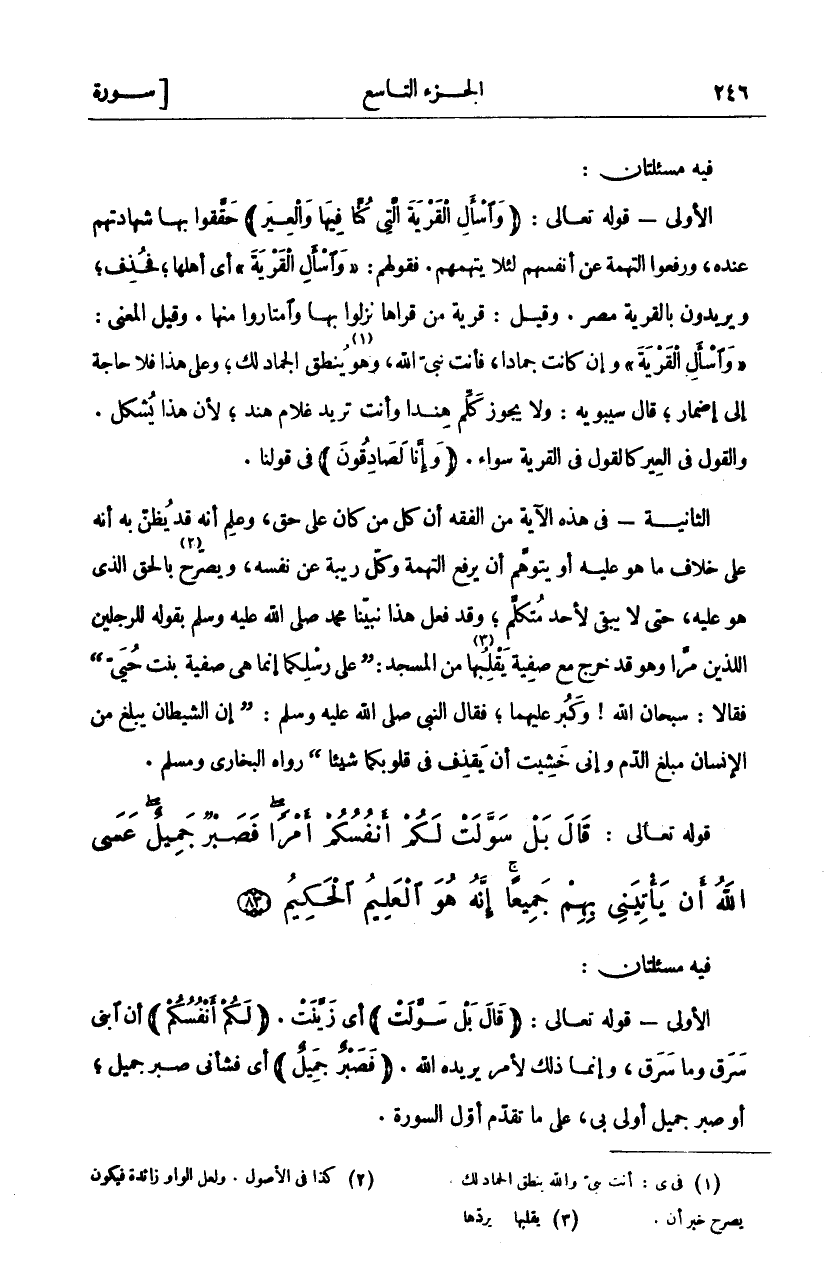 ٢٤٦ الجزء التاسع [ سورة
فيه مسئلتان :
الأولى — قوله تعالى : ﴿ وَٱسْأَلِ الْقَرْيَةَ الَّتِي كُنَّا فِيهَا وَالْعِيرَ ﴾ حَقَّقوا بها شهادتهم
عنده، ورفعوا التهمة عن أنفسهم لئلا يتهمهم. فقولهم: «وَٱسْأَلِ الْقَرْيَةَ» أى أهلها؛ فحُذِف؛
ويريدون بالقرية مصر. وقيل : قرية من قراها نزلوا بها وٱمتاروا منها. وقيل المعنى :
«وَٱسْأَلِ الْقَرْيَةَ» وإن كانت جمادا، فأنت نبىّ الله، وهو يُنطق الجماد لك(١)؛ وعلى هذا فلا حاجة
إلى إضمار؛ قال سيبويه : ولا يجوز كَلِّم هِندا وأنت تريد غلام هند؛ لأن هذا يُشكل.
والقول فى العير كالقول فى القرية سواء. ﴿ وَإِنَّا لَصَادِقُونَ ﴾ فى قولنا.
الثانية — فى هذه الآية من الفقه أن كل من كان على حق، وعلِم أنه قد يُظنّ به أنه
على خلاف ما هو عليه أو يتوهَّم أن يرفع التهمة وكلّ ريبة عن نفسه، ويصرّح(٢) بالحق الذى
هو عليه، حتى لا يبقى لأحد مُتكلَّم؛ وقد فعل هذا نبيّنا محمد صلى الله عليه وسلم بقوله للرجلين
اللذين مرّا وهو قد خرج مع صفية يَقْلِبُها(٣) من المسجد: ”على رِسْلِكما إنما هى صفية بنت حُيَىّ“
فقالا : سبحان الله ! وَكَبُر عليهما؛ فقال النبى صلى الله عليه وسلم : ”إن الشيطان يبلغ من
الإنسان مبلغ الدّم وإنى خَشِيت أن يَقذِف فى قلوبكما شيئا“ رواه البخارى ومسلم.
قوله تعالى : قَالَ بَلْ سَوَّلَتْ لَكُمْ أَنفُسُكُمْ أَمْرًا فَصَبْرٌ جَمِيلٌ عَسَى
اللَّهُ أَن يَأْتِيَنِي بِهِمْ جَمِيعًا إِنَّهُ هُوَ ٱلْعَلِيمُ ٱلْحَكِيمُ ﴿٨٣﴾
فيه مسئلتان :
الأولى — قوله تعالى : ﴿ قَالَ بَلْ سَوَّلَتْ ﴾ أى زَيَّنَتْ. ﴿ لَكُمْ أَنْفُسُكُمْ ﴾ أن ٱبنى
سَرَق وما سَرَق، وإنما ذلك لأمر يريده الله. ﴿ فَصَبْرٌ جَمِيلٌ ﴾ أى فشأنى صبر جميل؛
أو صبر جميل أولى بى، على ما تقدّم أوّل السورة.
(١) فى ى : أنت نبىّ والله ينطق الجماد لك. (٢) كذا فى الأصول. ولعل الواو زائدة فيكون
يصرح خبر أن. (٣) يقلبها يردّها